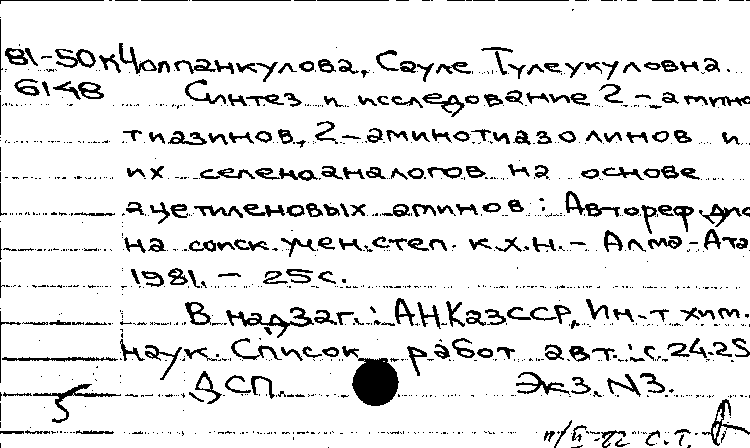 81-50к Чолпанкулова, Сауле Тулеукуловна.
6148 Синтез и исследование 2-амино
тиазинов, 2-аминотиазолинов и
их селеноаналогов на основе
ацетиленовых аминов : Автореф. дис
на соиск. учен. степ. к.х.н. - Алма-Ата
1981. - 25 с.
В надзаг.: АН КазССР, Ин-т хим.
наук. Список работ авт.: с. 24-25
ДСП. Экз. N3.
5